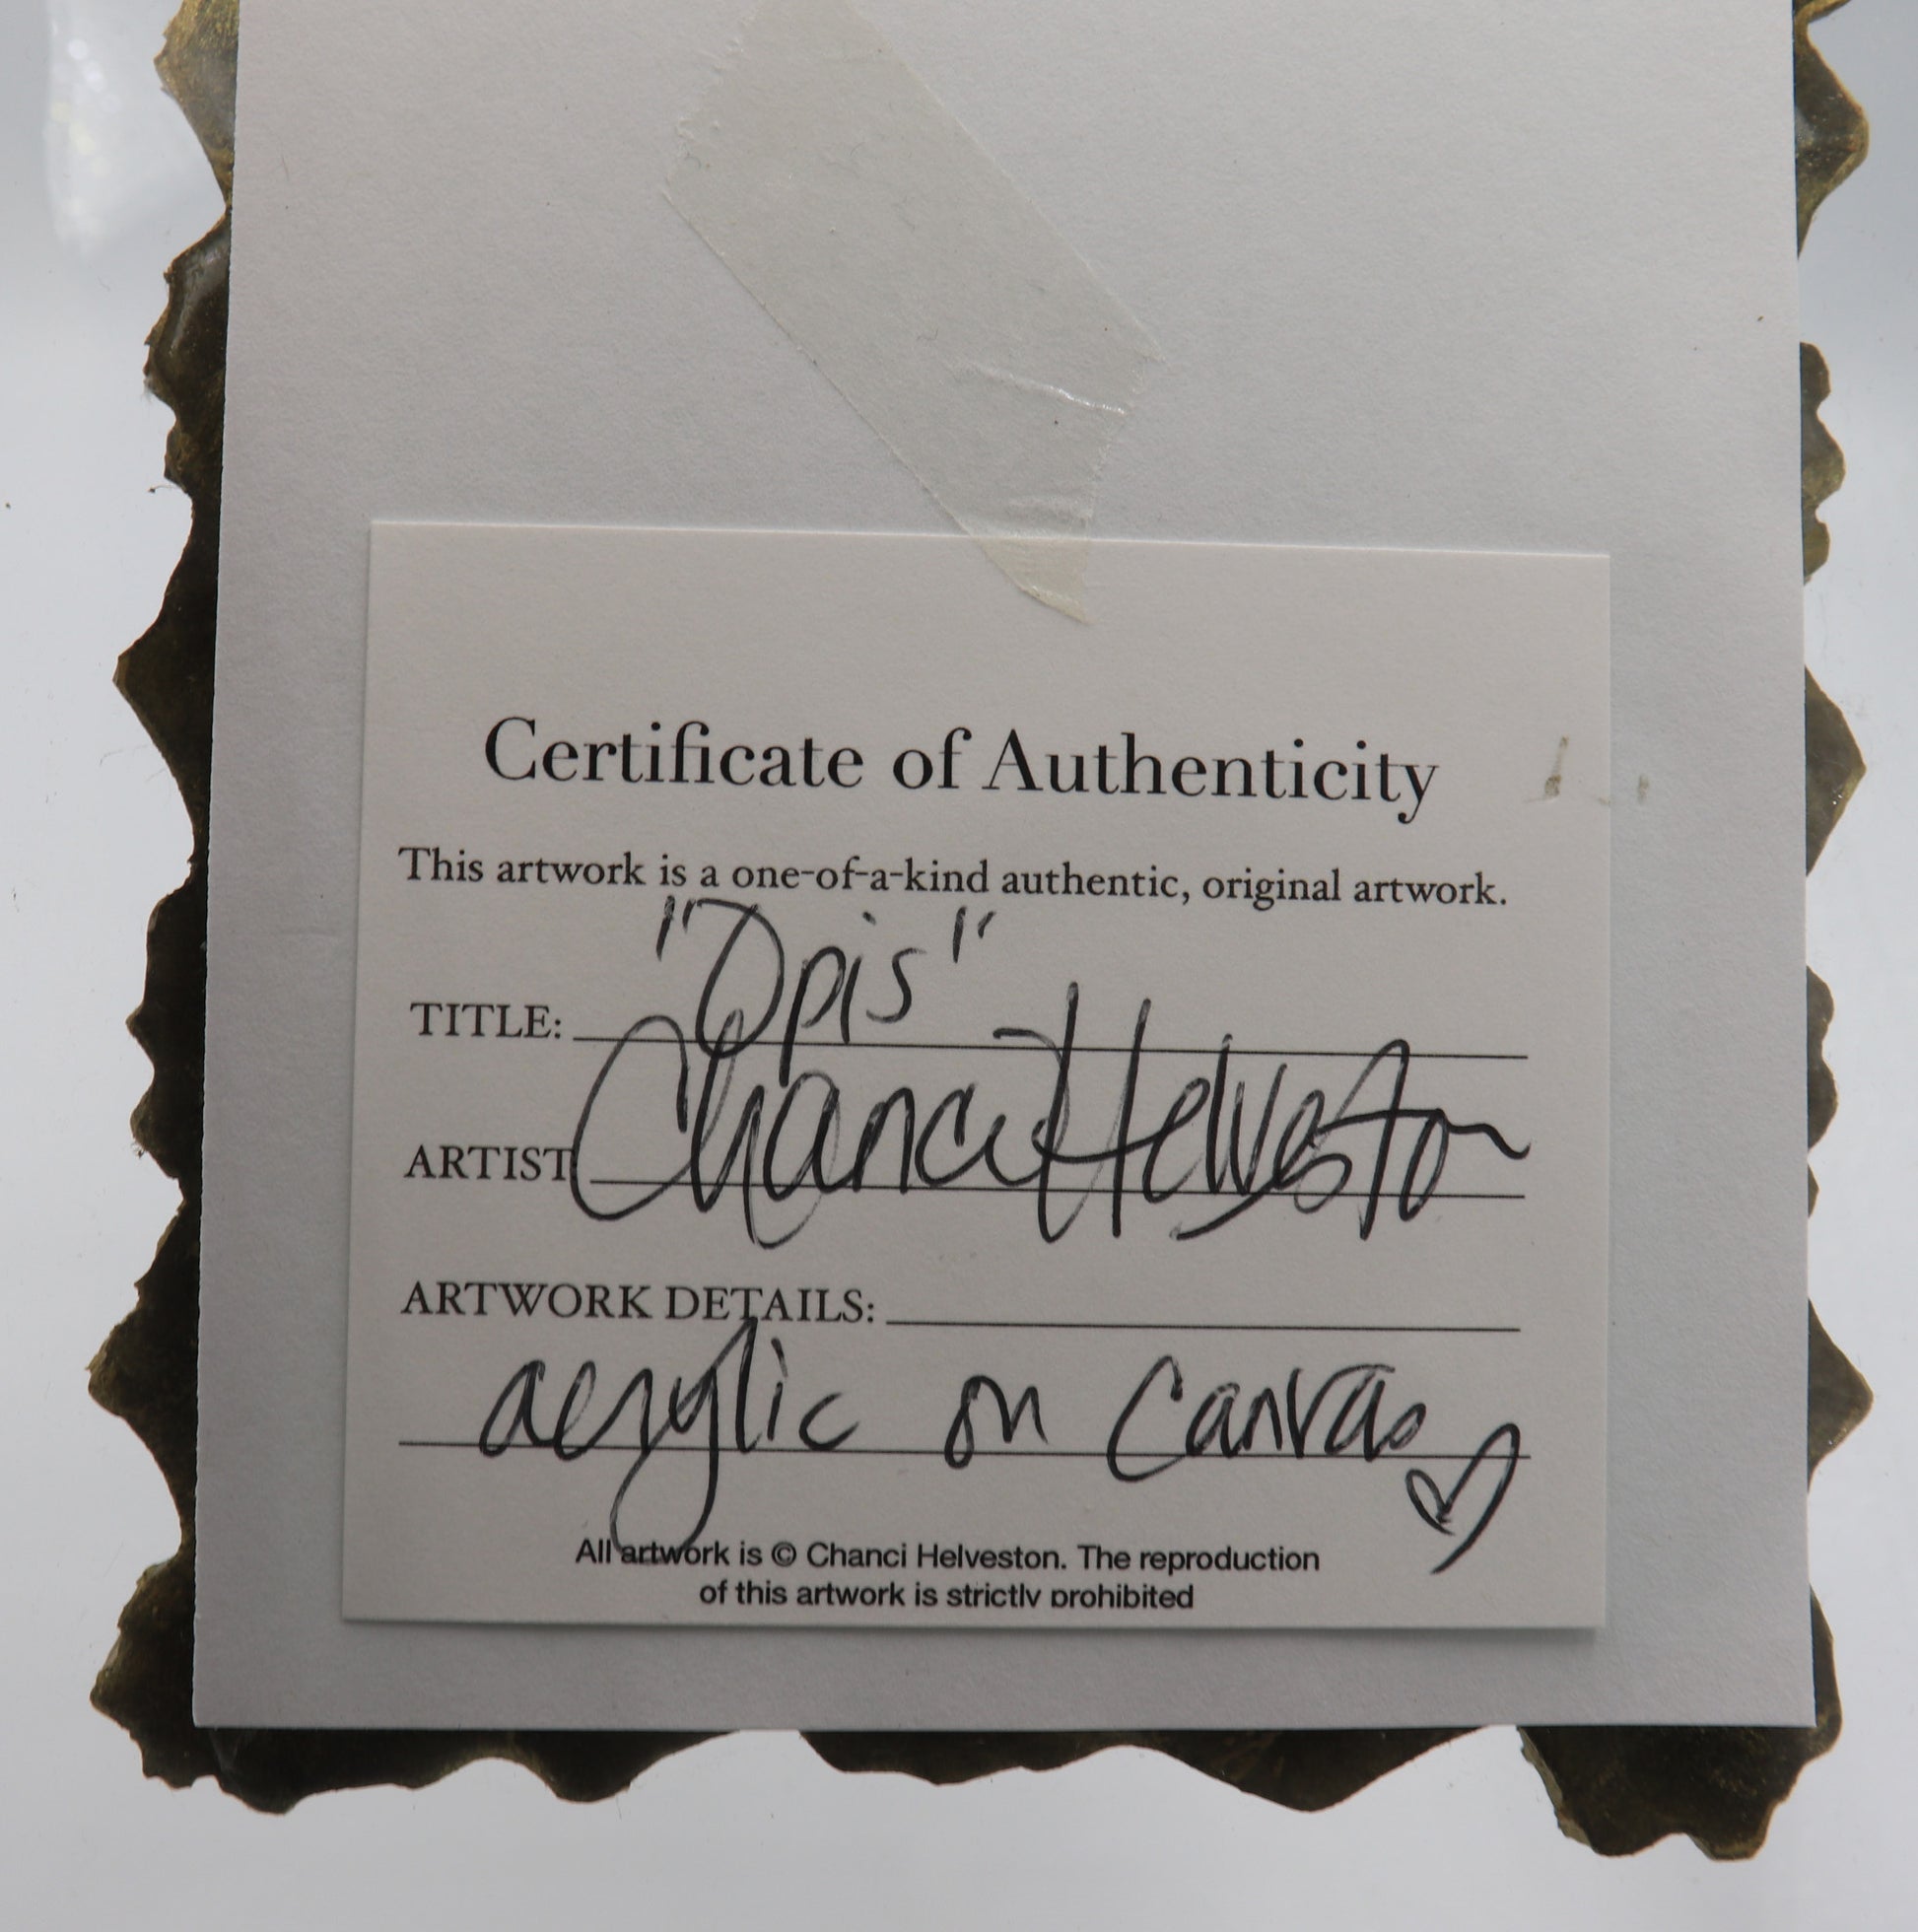 Certificate of Authenticity
This artwork is a one-of-a-kind authentic, original artwork.
TITLE: "Opis"
ARTIST Chanci Helveston
ARTWORK DETAILS:
acrylic on Canvas
All artwork is © Chanci Helveston. The reproduction
of this artwork is strictly prohibited